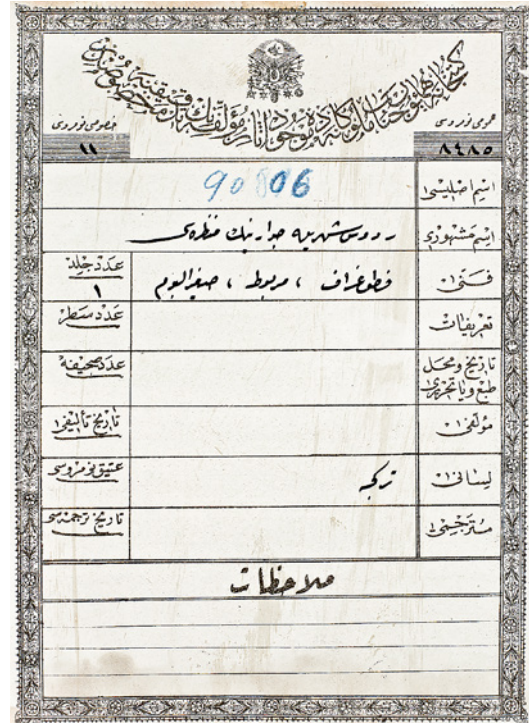 عمومی نوروسی
٨٤٨٥
خصوصی نوروسی
١١
اسم اصلیسی
90806
اسم مشهوری
ردوس شهریله جوارینك منظره‌سی
فنی
فطوغراف ، مربوط ، صغیرالبوم
عدد جلد
١
تعریفات
عدد سطر
تاریخ و محل
طبع ویا تحریری
عدد صحیفه
مؤلفی
تاریخ تألیفی
لسانی
ترکجه
عتیق نومروسی
مترجمی
تاریخ ترجمه‌سی
ملاحظات